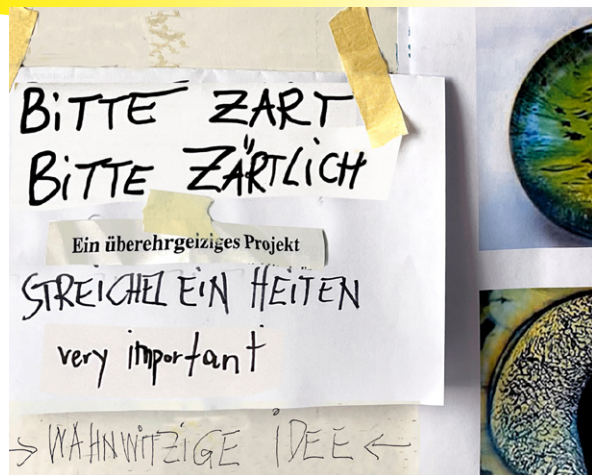 BITTE ZART
BITTE ZÄRTLICH
Ein überehrgeiziges Projekt
STREICHEL EIN HEITEN
very important
→ WAHNWITZIGE IDEE ←